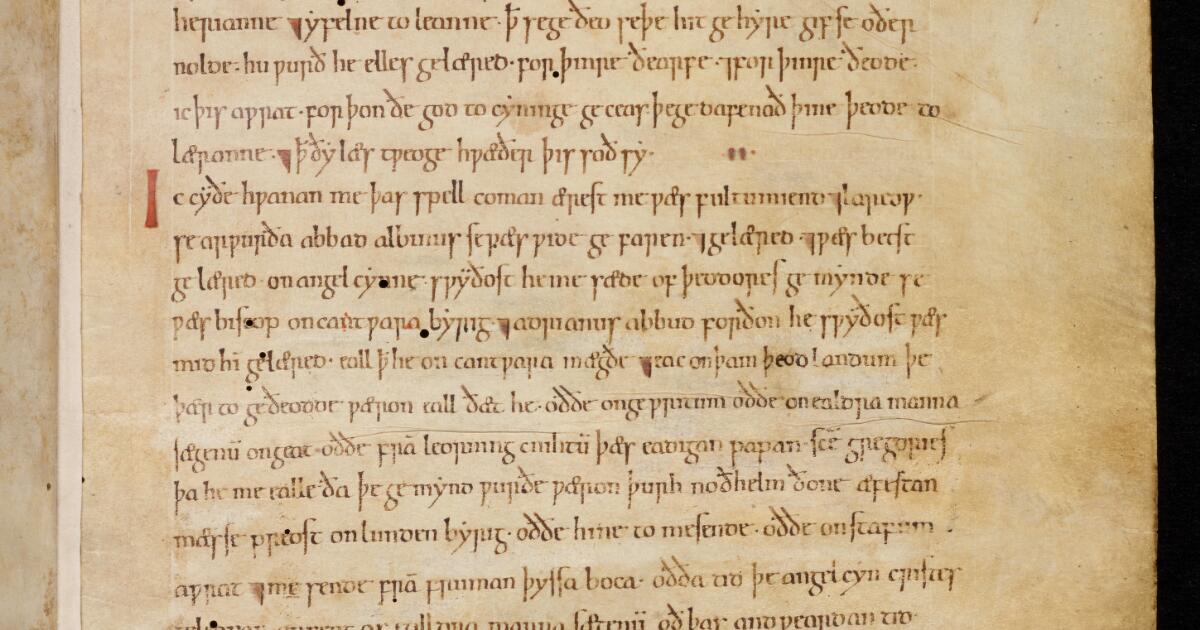 herianne ⁊ yfelne to leanne· þ̄ se ge ðeo seþe hit ge hyre gif se oðer
nolde· hu ƿurð he elles gelæred· for þinre ðearfe· ⁊ for þinre ðeode·
ic þis aƿrat· for þon ðe god to cyninge ge ceas þe ge dafenað þine þeode to
læranne· ⁊ þ̄ ðy læs tƿeoge hƿæðer þis soð sy·
Ic cyðe hƿanan me þas spell coman ærest me ƿæs fultumiend ⁊ lareoƿ·
se arƿurða abbad albinus se ƿæs ƿide ge faren· ⁊ gelæred· ⁊ ƿæs betst
ge læred· on angel cynne· sƿyðost he me sæde of þeodores ge mynde se
ƿæs biscop on cantƿara byrig· ⁊ adrianus abbud forðon he sƿyðost ƿæs
mid hī gelæred· eall þ̄ he on cantƿara mægðe ⁊ eac on þam þeod landum þe
þær to geðeodde ƿæron eall ðæt he· oððe on geƿritum oððe on ealdra manna
sægenū ongeat· oððe frā leorning cnihtū þæs eadigan papan· sc̄e gregories
þa he me ealle ða þe ge mynd ƿurðe ƿæron þurh noðhelm ðone æfestan
mæsse preost on lunden byrig· oððe hine to me sende· oððe on stafum
aƿrat ⁊ me sende frā fruman þyssa boca· oðða tid þe angel cyn cristes
ealdra manna sætenū oð þas andƿeardan tid·